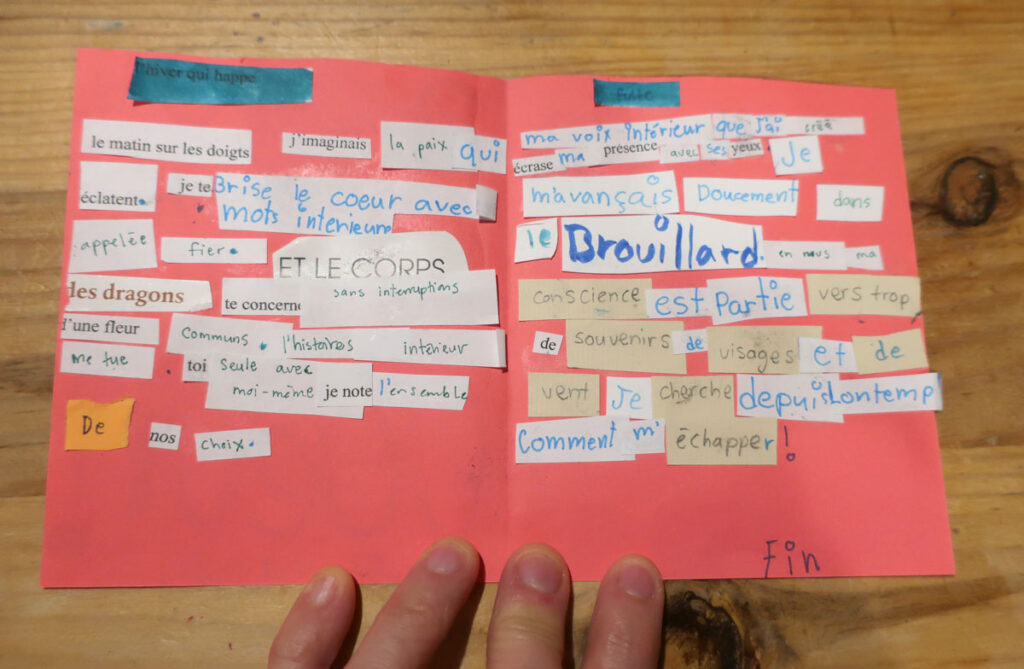 l'hiver qui happe
le matin sur les doigts j'imaginais la paix qui
éclatent. je te Brise le coeur avec
mots intérieurs
appelée fier.
ET LE CORPS
les dragons te concerne sans interruptions
d'une fleur communs. l'histoires intérieur
me tue toi seule avec
moi-même je note l'ensemble
De nos choix.
fuite
ma voix intérieur que j'ai créé
écrase ma présence avec ses yeux. Je
m'avançais Doucement dans
le Brouillard. en nous ma
conscience est Partie vers trop
de souvenirs de visages et de
vent Je cherche depuis Lontemp
Comment m' échapper!
Fin